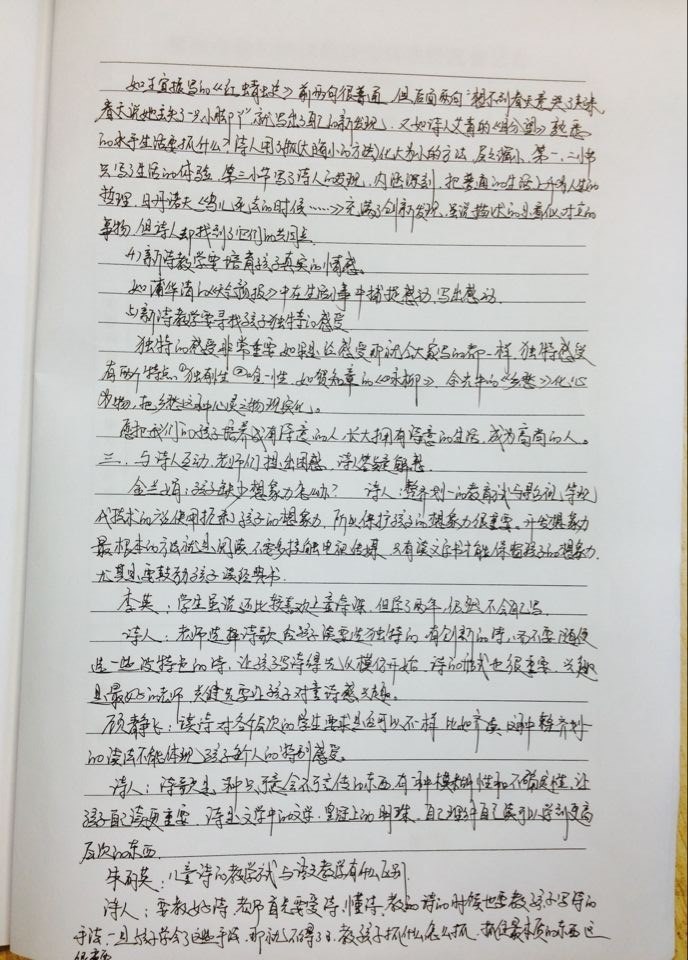 如王宜振写的《红蜻蜓》前两句很普通，但后面两句“想不到春天竟哭了起来
春天说她丢失了一只小脚丫”就写出了自己的新发现，又如诗人艾青的《》熟悉
的水乎生活要抓什么？诗人用了抓大脑小的方法化大为小的方法，层层缩小，第一、二小节
只写了生活的体验，第三小节写了诗人的发现，内涵深刻，把普通的生活上升为人生的
哲理，日丹诺夫《鸟儿死去的时候……》充满了创新发现，虽说描状的是看似对立的
事物，但诗人却找到了它们的共同点
4）新诗教学要培育孩子真实的情感。
如蒲华清的《天气预报》中在生活小事中捕捉感动，写出感动
5）新诗教学要寻找孩子独特的感受
独特的感受非常重要，如果是公感受那就会大家写的都一样，独特感受
有两个特点①独创性②唯一性，如贺知章的《咏柳》、余光中的《乡愁》化心
为物，把乡愁这种心灵之物现实化。
愿把我们的孩子培养成有诗意的人，长大拥有诗意的生活，成为高尚的人。
三、与诗人互动，老师们提出困惑，诗人答疑解惑
金兰娟：孩子缺少想象力怎么办？ 诗人：整齐划一的教育试与得分词，等现
代技术的方法使用扼杀了孩子的想象力，所以保护孩子的想象力很重要，开发想象力
最根本的方法就是阅读，不要多接触电视媒体，只有读文学书才能保留孩子的想象力
尤其是要鼓励孩子读经典书
李英：学生虽说还比较喜欢上童诗课，但学了两年，仍然不会自己写
诗人：老师选择诗歌给孩子读要选独特的，有创新的诗，而不要随便
选一些没特色的诗，让孩子写诗得先从模仿开始，诗的格式也很重要，兴趣
是最好的老师，关键是要让孩子对童诗感兴趣。
顾静飞：读诗对各个层次的学生要求是否可以不一样，比如齐读，这种整齐划一
的读法不能体现孩子每个人的特别感受。
诗人：诗歌是一种只可意会不可言传的东西，有一种模糊性和不确定性，让
孩子自己读更重要，诗是文学中的文学，皇冠上的明珠，自己理解自己读可以学到更高
层次的东西
朱丽英：儿童诗的教学试与语文教学有什么区别
诗人：要教好诗，老师首先要爱诗，懂诗，教的诗的时候也要教孩子写诗的
手法，一旦孩子学会了这些手法，那就不得了了，教孩子抓什么怎么抓，抓住最本质的东西，这
很重要